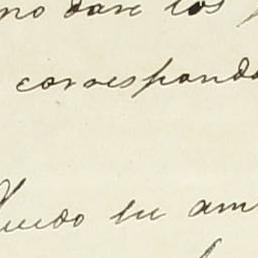 no dare los
corresponda
Quedo su am